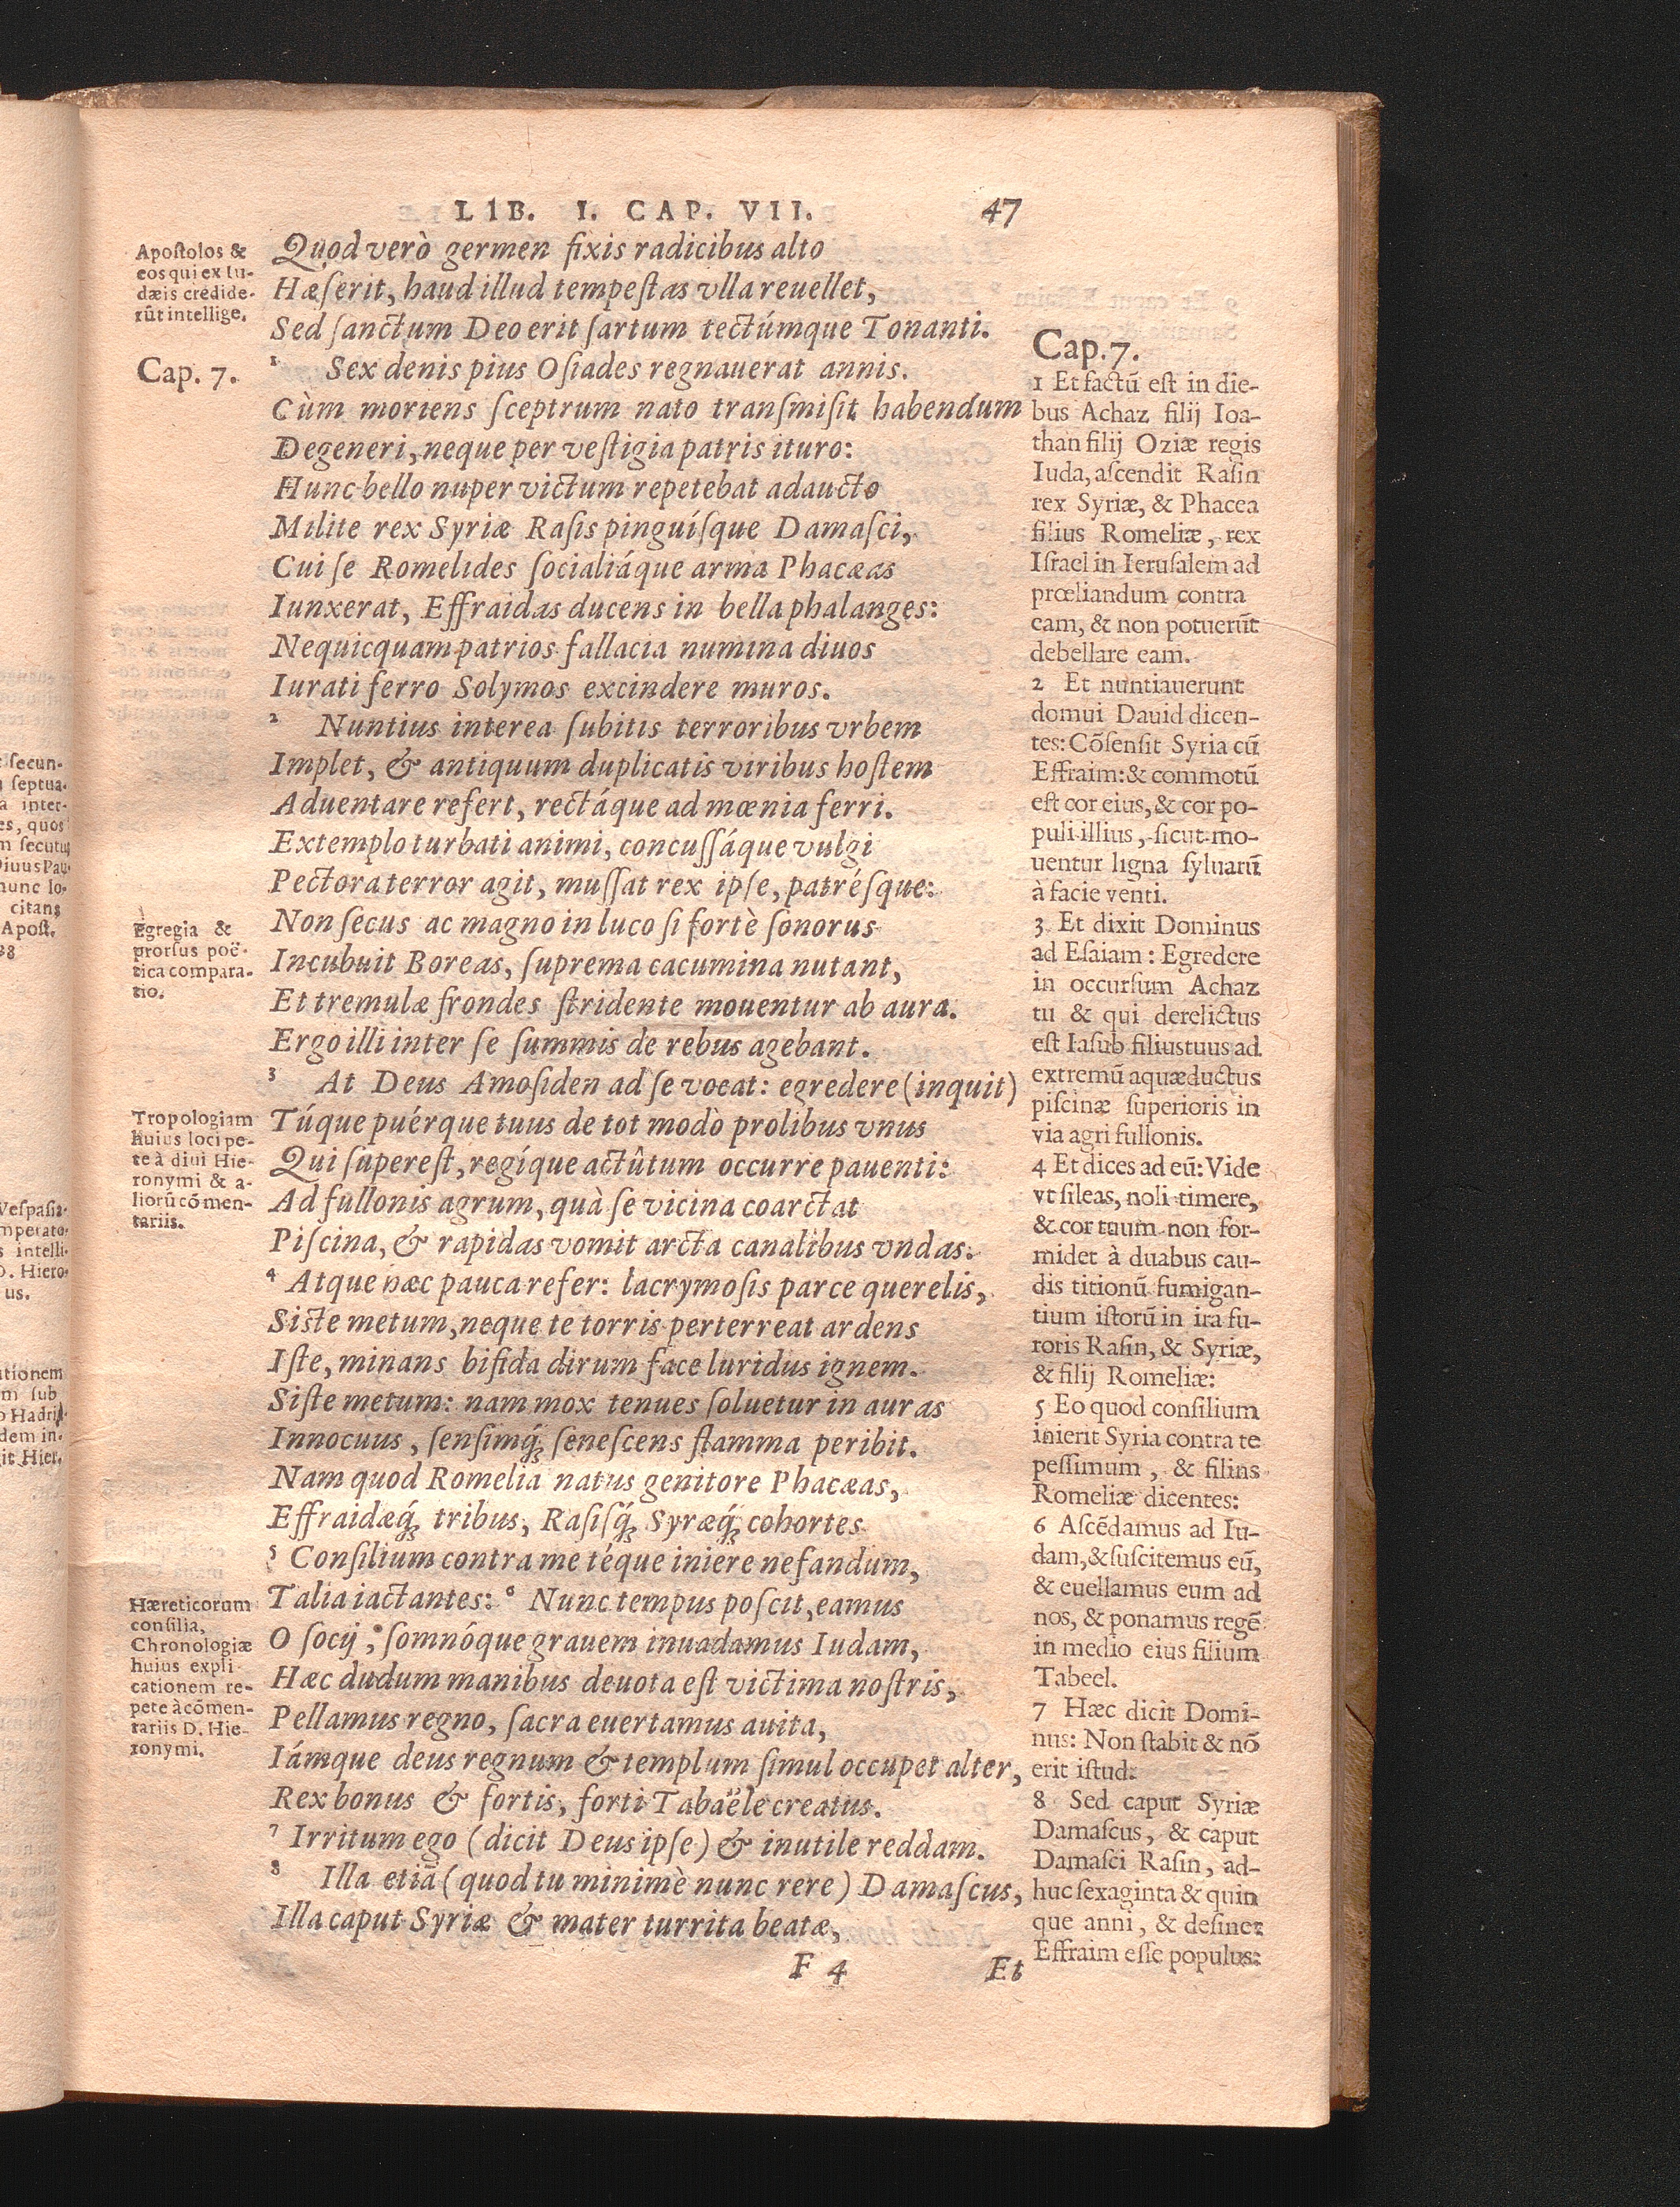 LIB. I. CAP. VII. 47
Apoſtolos &
eos qui ex Iu-
dæis credide-
rũt intellige.
Cap. 7.
Egregia &
prorſus poë-
tica compara-
tio.
Tropologiam
huius loci pe-
te à diui Hie-
ronymi & a-
liorũ cõmen-
tariis.
Hæreticorum
conſilia,
Chronologiæ
huius expli
cationem re-
pete à cõmen-
tariis D. Hie-
ronymi.
Quod verò germen fixis radicibus alto
Hæſerit, haud illud tempeſtas vlla reuellet,
Sed ſanctum Deo erit ſartum tectúmque Tonanti.
1 Sex denis pius Oſiades regnauerat annis.
Cùm moriens ſceptrum nato tranſmiſit habendum
Degeneri, neque per veſtigia patris ituro:
Hunc bello nuper victum repetebat adaucto
Milite rex Syriæ Raſis pinguíſque Damaſci,
Cui ſe Romelides ſocialiáque arma Phacæas
Iunxerat, Effraidas ducens in bella phalanges:
Nequicquam patrios fallacia numina diuos
Iurati ferro Solymos excindere muros.
2 Nuntius interea ſubitis terroribus vrbem
Implet, & antiquum duplicatis viribus hoſtem
Aduentare refert, rectáque ad mœnia ferri.
Extemplo turbati animi, concuſſáque vulgi
Pectora terror agit, muſſat rex ipſe, patréſque:
Non ſecus ac magno in luco ſi fortè ſonorus
Incubuit Boreas, ſuprema cacumina nutant,
Et tremulæ frondes ſtridente mouentur ab aura.
Ergo illi inter ſe ſummis de rebus agebant.
3 At Deus Amoſiden ad ſe vocat: egredere (inquit)
Túque puérque tuus de tot modò prolibus vnus
Qui ſupereſt, regíque actûtum occurre pauenti:
Ad fullonis agrum, quà ſe vicina coarctat
Piſcina, & rapidas vomit arcta canalibus vndas.
4 Atque hæc pauca refer: lacrymoſis parce querelis,
Siſte metum, neque te torris perterreat ardens
Iſte, minans bifida dirum face luridus ignem.
Siſte metum: nam mox tenues ſoluetur in auras
Innocuus, ſenſimq́; ſeneſcens flamma peribit.
Nam quod Romelia natus genitore Phacæas,
Effraidæq́; tribus, Raſiſq́; Syræq́; cohortes
5 Conſilium contra me téque iniere nefandum,
Talia iactantes: 6 Nunc tempus poſcit, eamus
O ſocij, ſomnóque grauem inuadamus Iudam,
Hæc dudum manibus deuota eſt victima noſtris,
Pellamus regno, ſacra euertamus auita,
Iámque deus regnum & templum ſimul occupet alter,
Rex bonus & fortis, forti Tabaële creatus.
7 Irritum ego (dicit Deus ipſe) & inutile reddam.
8 Illa etiã (quod tu minimè nunc rere) Damaſcus,
Illa caput Syriæ & mater turrita beatæ,
F 4 Et
Cap. 7.
1 Et factũ eſt in die-
bus Achaz filij Ioa-
than filij Oziæ regis
Iuda, aſcendit Raſin
rex Syriæ, & Phacea
filius Romeliæ, rex
Iſrael in Ieruſalem ad
prœliandum contra
eam, & non potuerũt
debellare eam.
2 Et nuntiauerunt
domui Dauid dicen-
tes: Cõſenſit Syria cũ
Effraim: & commotũ
eſt cor eius, & cor po-
puli illius, ſicut mo-
uentur ligna ſyluarũ
à facie venti.
3 Et dixit Dominus
ad Eſaiam: Egredere
in occurſum Achaz
tu & qui derelictus
eſt Iaſub filius tuus ad
extremũ aquæductus
piſcinæ ſuperioris in
via agri fullonis.
4 Et dices ad eũ: Vide
vt ſileas, noli timere,
& cor tuum non for-
midet à duabus cau-
dis titionũ fumigan-
tium iſtorũ in ira fu-
roris Raſin, & Syriæ,
& filij Romeliæ:
5 Eo quod conſilium
inierit Syria contra te
peſſimum, & filius
Romeliæ dicentes:
6 Aſcẽdamus ad Iu-
dam, & ſuſcitemus eũ,
& euellamus eum ad
nos, & ponamus regẽ
in medio eius filium
Tabeel.
7 Hæc dicit Domi-
nus: Non ſtabit & nõ
erit iſtud:
8 Sed caput Syriæ
Damaſcus, & caput
Damaſci Raſin, ad-
huc ſexaginta & quin
que anni, & deſinet
Effraim eſſe populus: